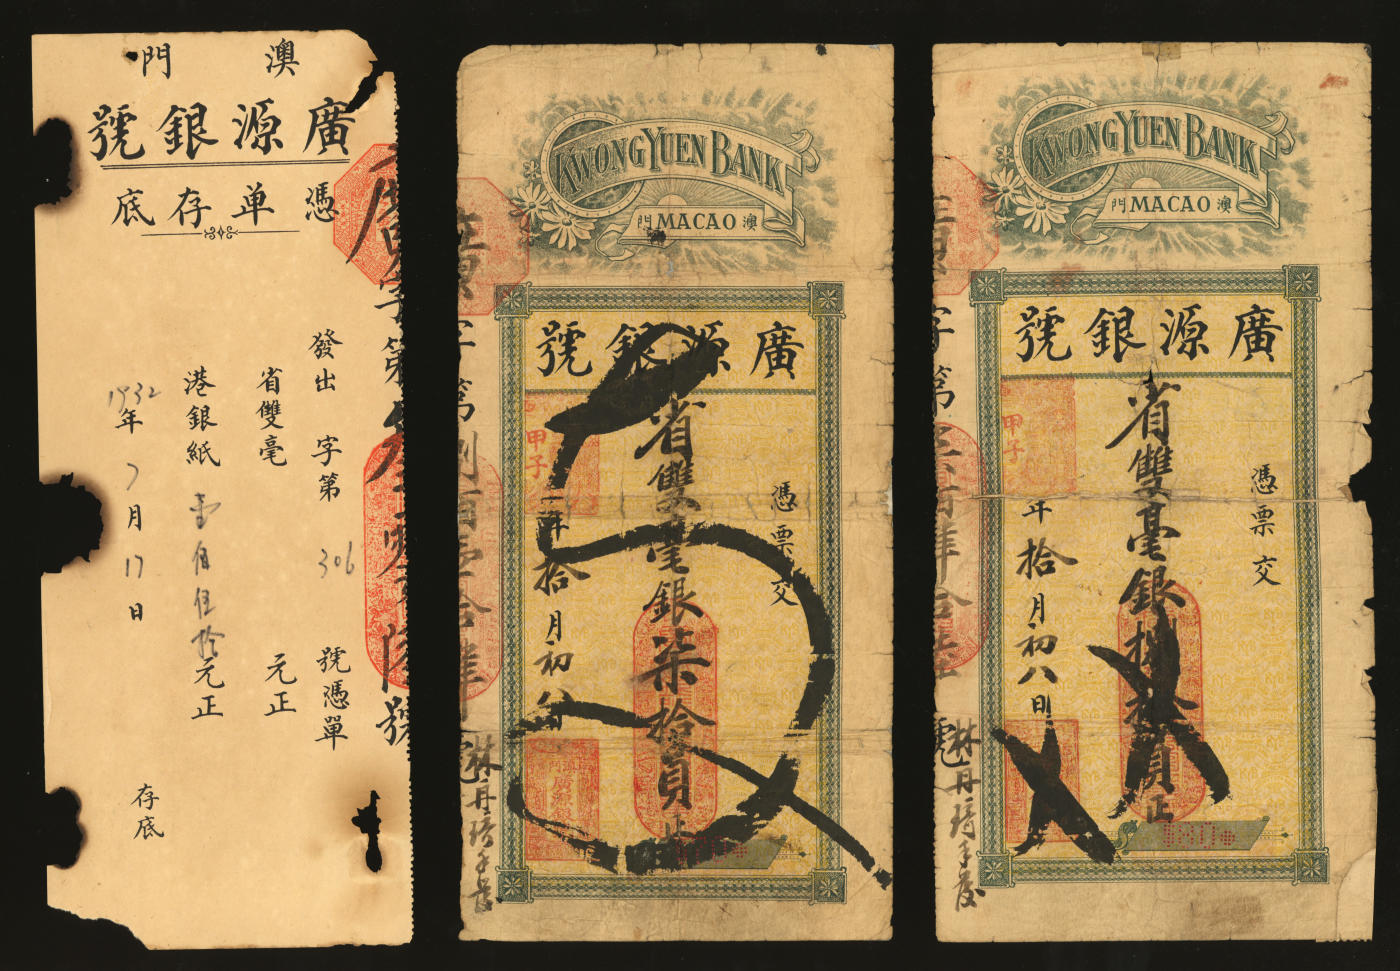 澳門
廣源銀號
憑單存底
發出 字第 306 號憑單
省雙毫 元正
港銀紙 壹佰伍拾元正
1932年 7月 17日
存底
KWONG YUEN BANK
門 MACAO 澳
廣源銀號
憑票交
省雙毫銀柒拾員正
甲子年拾月初八日
林丹
KWONG YUEN BANK
門 MACAO 澳
廣源銀號
憑票交
省雙毫銀捌拾員正
甲子年拾月初八日
林丹
$80.00